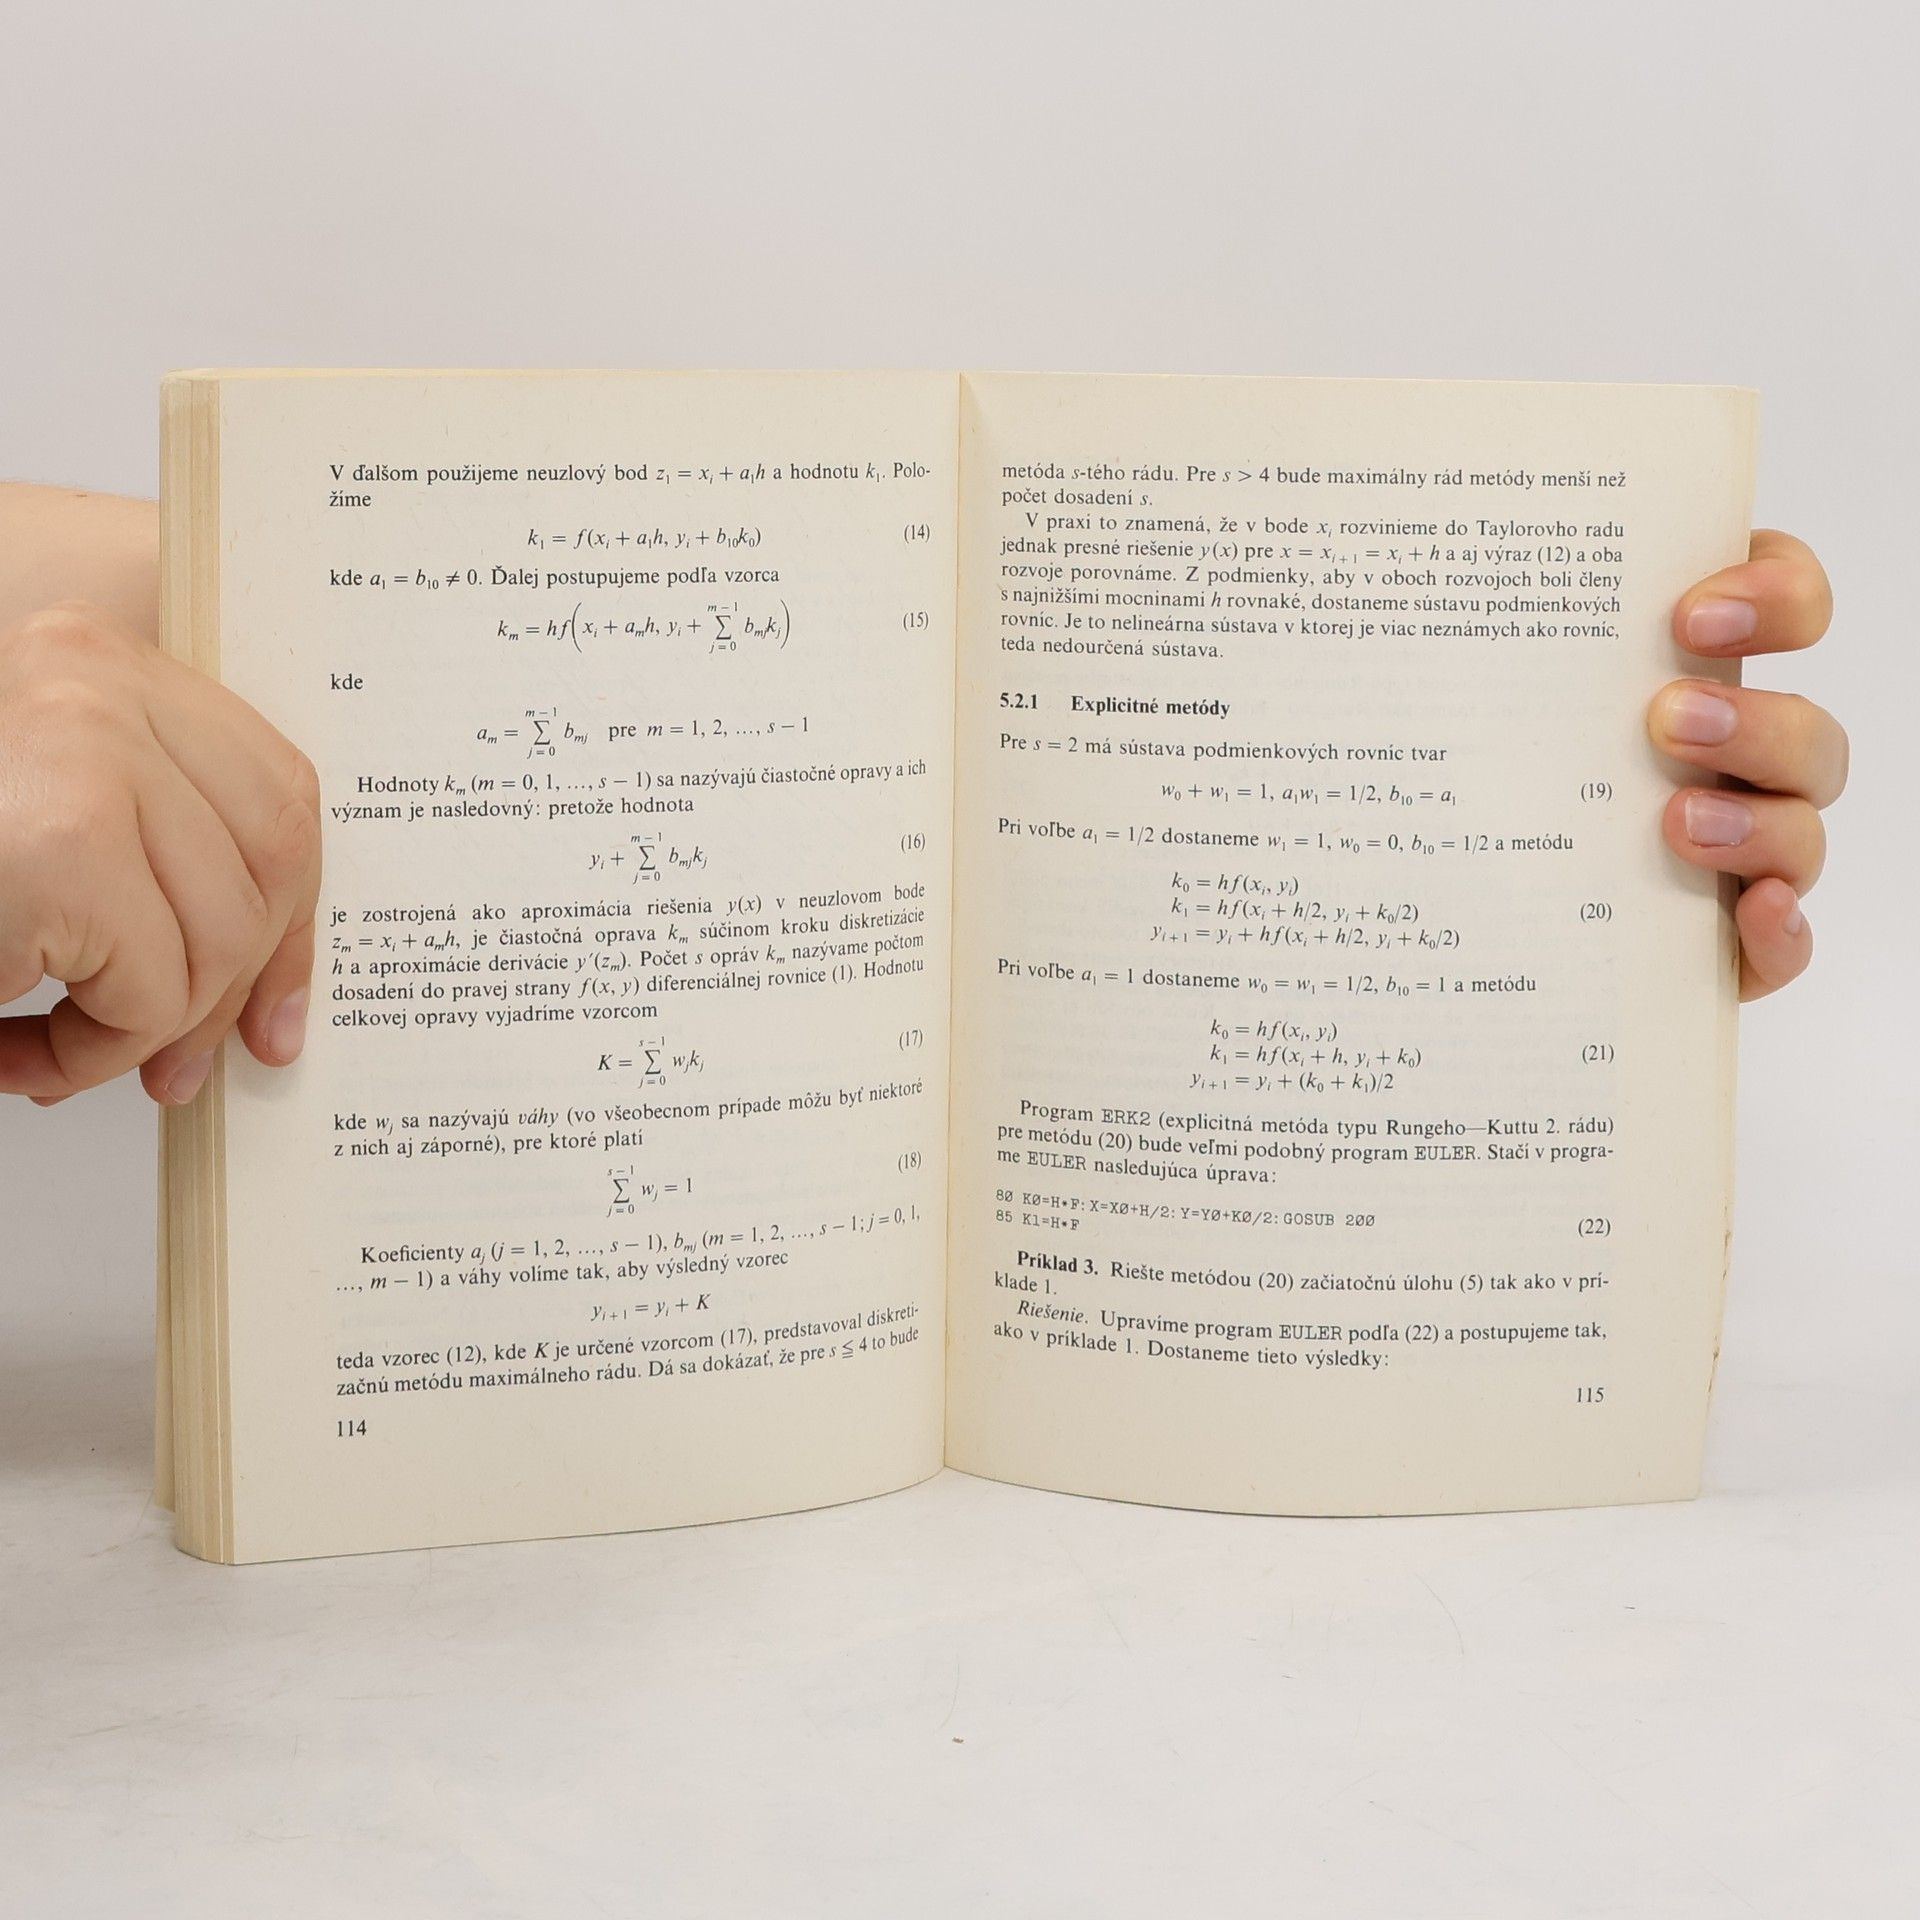 V ďalšom použijeme neuzlový bod z₁ = xᵢ + a₁h a hodnotu k₁. Polo-
žíme
k₁ = f(xᵢ + a₁h, yᵢ + b₁₀k₀) (14)
kde a₁ = b₁₀ ≠ 0. Ďalej postupujeme podľa vzorca
k_m = hf(xᵢ + a_m h, yᵢ + ∑_{j=0}^{m−1} b_{mj}k_j) (15)
kde
a_m = ∑_{j=0}^{m−1} b_{mj} pre m = 1, 2, ..., s − 1
Hodnoty k_m (m = 0, 1, ..., s − 1) sa nazývajú čiastočné opravy a ich
význam je nasledovný: pretože hodnota
yᵢ + ∑_{j=0}^{m−1} b_{mj}k_j (16)
je zostrojená ako aproximácia riešenia y(x) v neuzlovom bode
z_m = xᵢ + a_m h, je čiastočná oprava k_m súčinom kroku diskretizácie
h a aproximácie derivácie y′(z_m). Počet s opráv k_m nazývame počtom
dosadení do pravej strany f(x, y) diferenciálnej rovnice (1). Hodnotu
celkovej opravy vyjadríme vzorcom
K = ∑_{j=0}^{s−1} w_j k_j (17)
kde w_j sa nazývajú váhy (vo všeobecnom prípade môžu byť niektoré
z nich aj záporné), pre ktoré platí
∑_{j=0}^{s−1} w_j = 1 (18)
Koeficienty a_j (j = 1, 2, ..., s − 1), b_{mj} (m = 1, 2, ..., s − 1; j = 0, 1,
..., m − 1) a váhy volíme tak, aby výsledný vzorec
yᵢ₊₁ = yᵢ + K
teda vzorec (12), kde K je určené vzorcom (17), predstavoval diskreti-
začnú metódu maximálneho rádu. Dá sa dokázať, že pre s ≦ 4 to bude
114
metóda s-tého rádu. Pre s > 4 bude maximálny rád metódy menší než
počet dosadení s.
V praxi to znamená, že v bode xᵢ rozvinieme do Taylorovho radu
jednak presné riešenie y(x) pre x = xᵢ₊₁ = xᵢ + h a aj výraz (12) a oba
rozvoje porovnáme. Z podmienky, aby v oboch rozvojoch boli členy
s najnižšími mocninami h rovnaké, dostaneme sústavu podmienkových
rovníc. Je to nelineárna sústava v ktorej je viac neznámych ako rovníc,
teda nedourčená sústava.
5.2.1 Explicitné metódy
Pre s = 2 má sústava podmienkových rovníc tvar
w₀ + w₁ = 1, a₁w₁ = 1/2, b₁₀ = a₁ (19)
Pri voľbe a₁ = 1/2 dostaneme w₁ = 1, w₀ = 0, b₁₀ = 1/2 a metódu
k₀ = hf(xᵢ, yᵢ)
k₁ = hf(xᵢ + h/2, yᵢ + k₀/2) (20)
yᵢ₊₁ = yᵢ + hf(xᵢ + h/2, yᵢ + k₀/2)
Pri voľbe a₁ = 1 dostaneme w₀ = w₁ = 1/2, b₁₀ = 1 a metódu
k₀ = hf(xᵢ, yᵢ)
k₁ = hf(xᵢ + h, yᵢ + k₀) (21)
yᵢ₊₁ = yᵢ + (k₀ + k₁)/2
Program ERK2 (explicitná metóda typu Rungeho—Kuttu 2. rádu)
pre metódu (20) bude veľmi podobný program EULER. Stačí v progra-
me EULER nasledujúca úprava:
80 KØ=H*F: X=XØ+H/2: Y=YØ+KØ/2: GOSUB 200
85 K1=H*F (22)
Príklad 3. Riešte metódou (20) začiatočnú úlohu (5) tak ako v prí-
klade 1.
Riešenie. Upravíme program EULER podľa (22) a postupujeme tak,
ako v príklade 1. Dostaneme tieto výsledky:
115